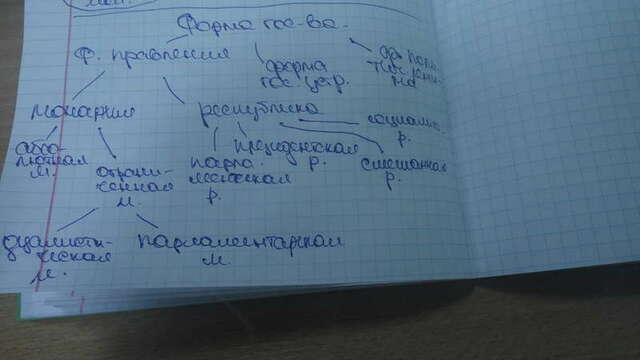 Форма гос-ва.
Ф. правления
форма
гос. устр.
монархия
республика
социали.
р.
абсо-
лютная
м.
ограни-
ченная
м.
парла-
ментская
р.
президентская
р.
смешанная
р.
дуалисти-
ческая
м.
парламентарная
м.